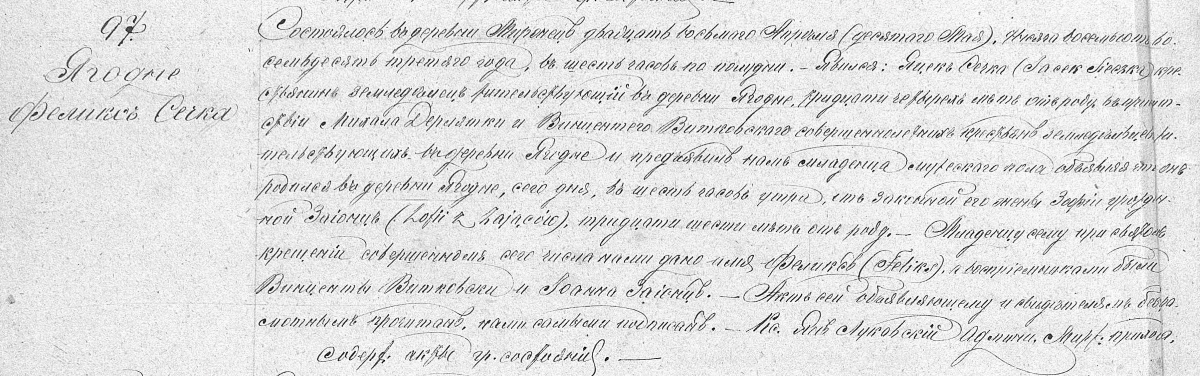 97.
Ягодне
Феликсъ Сечка
Состоялось въ деревни Мироненъ двадцать восьмаго Апрѣля (десятаго Мая), тысяча восемьсотъ во-
семьдесятъ третьяго года, въ шесть часовъ по полудни. — Явился: Яцекъ Сечка (Jacek Sieczka) кре-
стьянинъ земледѣлецъ жительствующій въ деревни Ягодне, тридцати четырехъ лѣтъ отъ роду, въ присут-
ствіи Михала и Винцентего Витковскаго совершеннолѣтнихъ крестьянъ земледѣльцевъ жи-
тельствующихъ въ деревни Ягодне и предъявилъ намъ младенца мужескаго пола объявляя что онъ
родился въ деревни Ягодне, сего дня, въ шесть часовъ утра, отъ законной его жены Зофіи урожден-
ной Заіонцъ (Zofii z Zająców), тридцати шести лѣтъ отъ роду. — Младенцу сему при святомъ
крещеніи совершенномъ сего числа нами дано имя Феликсъ (Feliks), а воспріемниками были
Винценты Витковски и Іоанна Заіонцъ. — Актъ сей объявляющему и свидѣтелямъ безгра-
мотнымъ прочитанъ, нами самыми подписанъ. — Кс. Янъ Луковскій Админ. прихода,
содерж. акты гр. состоянія. —